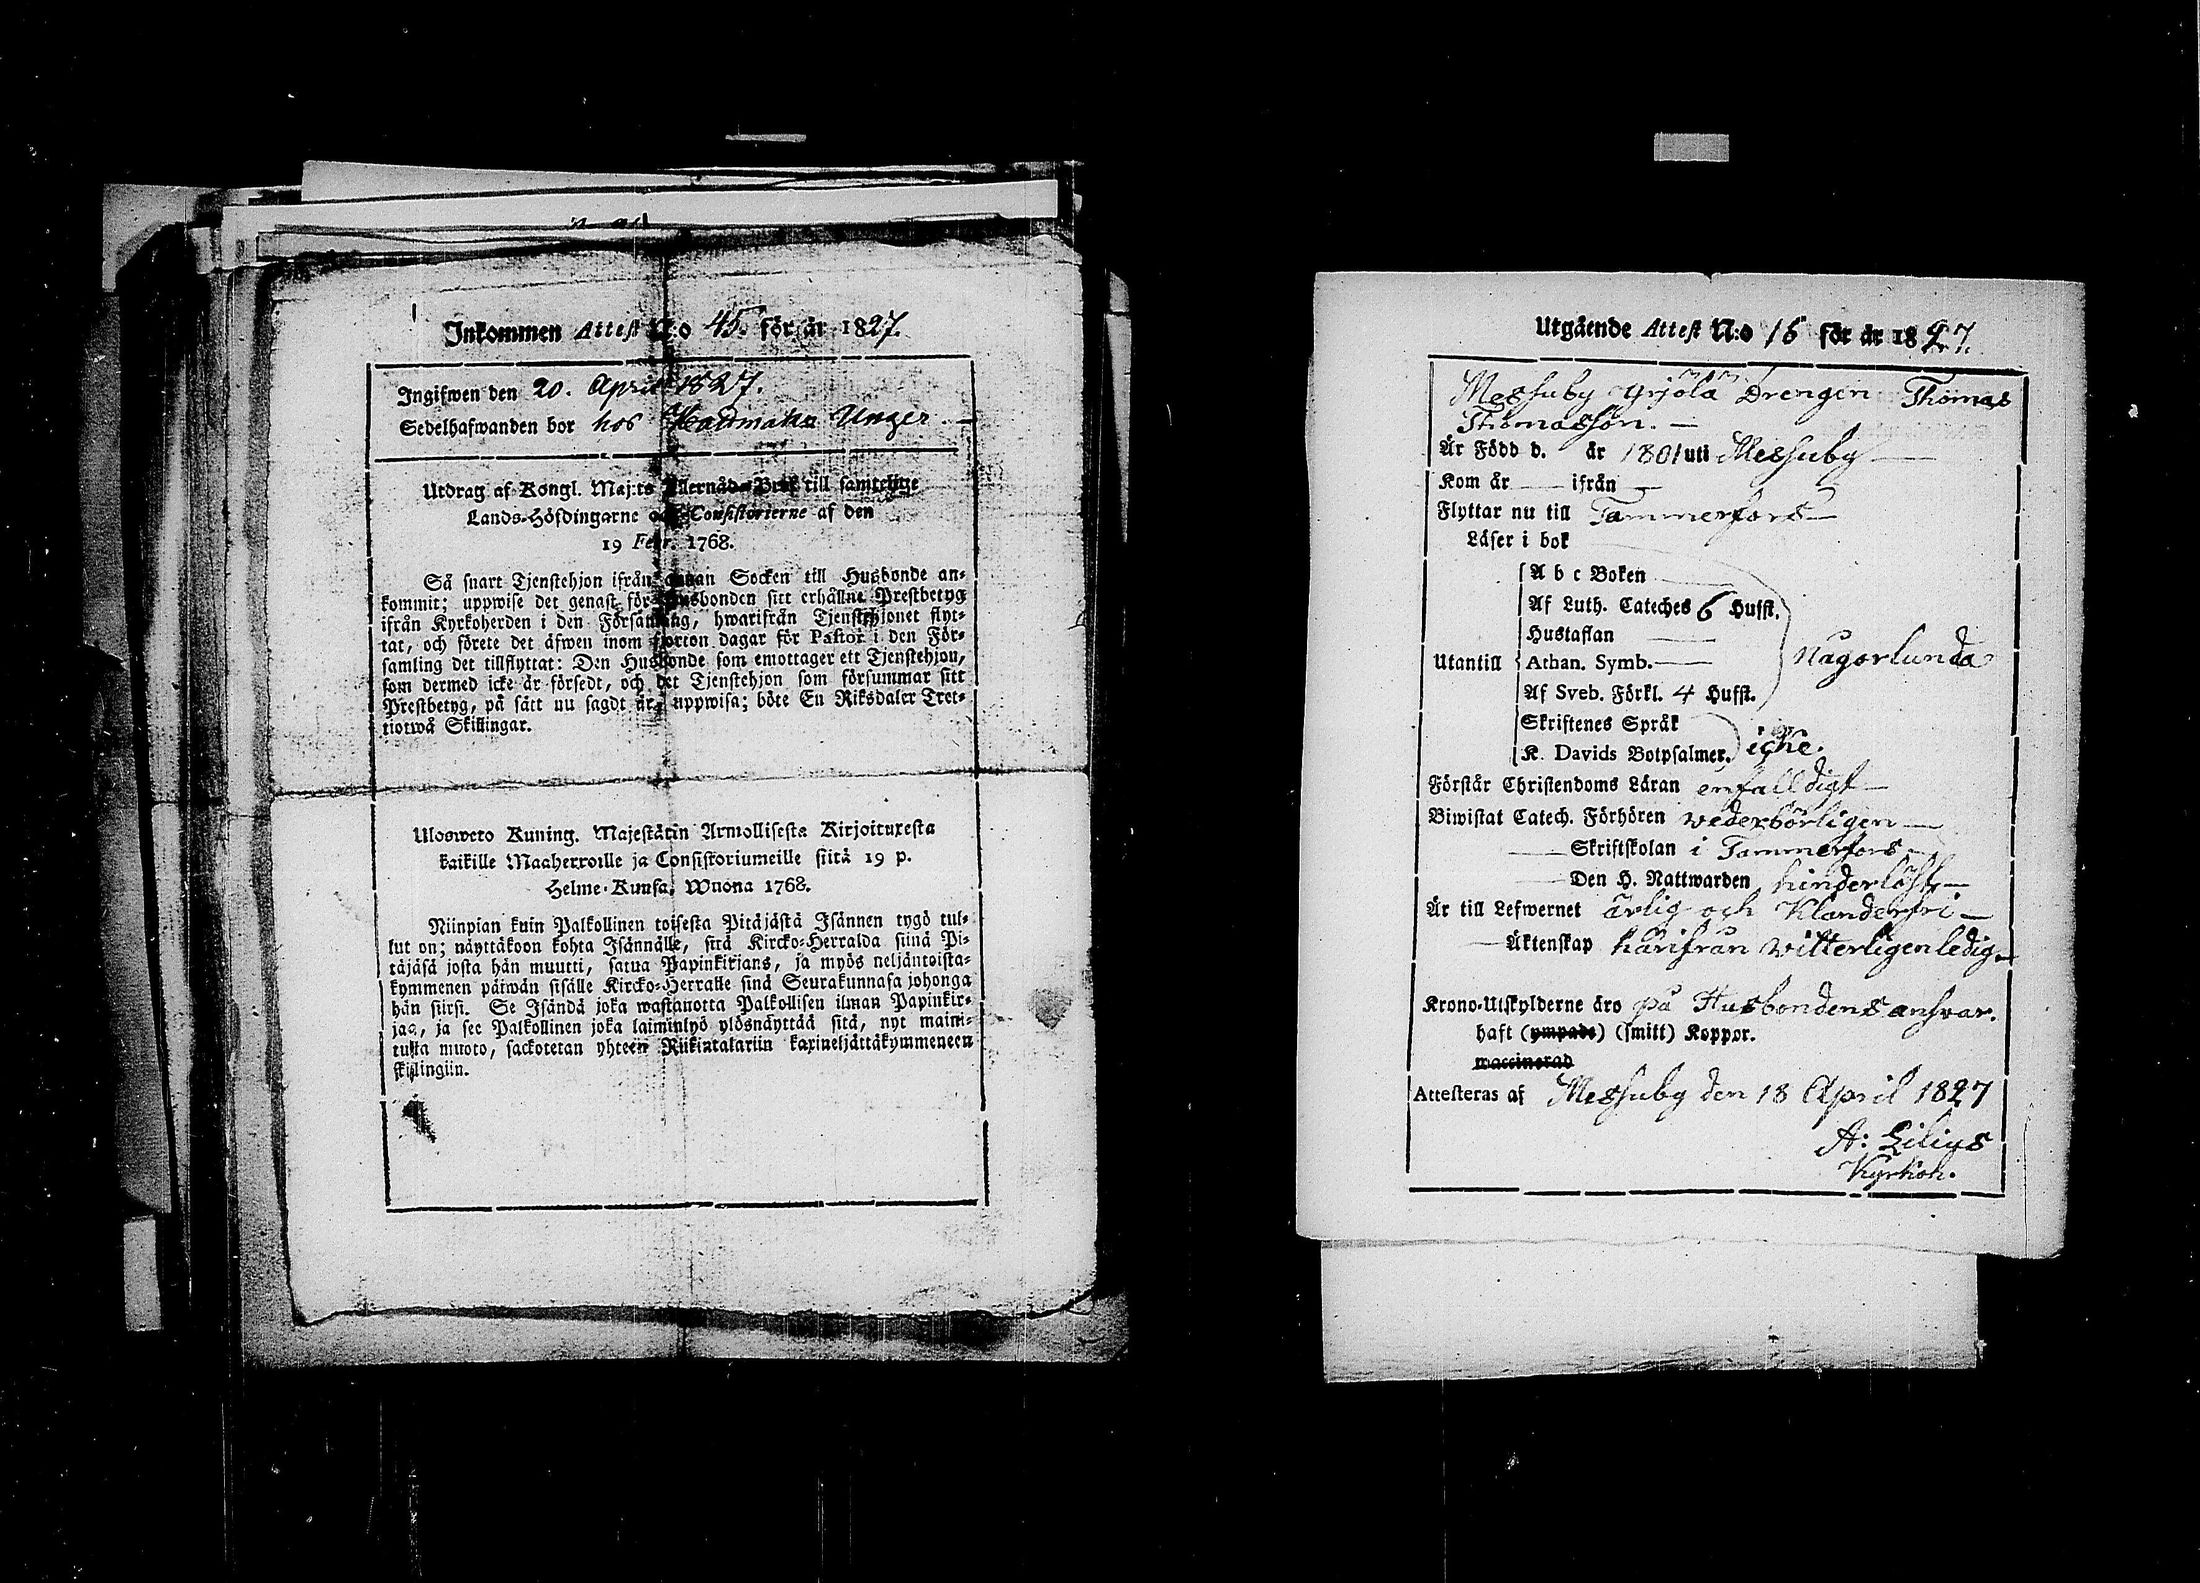 Inkommen Attest N:o 45. för år 1827.
Ingifwen den 20. April 1827.
Sedelhafwanden bor hos Unger
Utdrag af Kongl. Maj:ts Allernåd. Bref till samtelige
Lands-Höfdingarne och Consistorierne af den
19 Febr. 1768.
Så snart Tjenstehjon ifrån annan Socken till Husbonde an-
kommit; uppwise det genast för Husbonden sitt erhållne Prestbetyg
ifrån Kyrkoherden i den Församling, hwarifrån Tjenstehjonet flyt-
tat, och förete det äfwen inom fjorton dagar för Pastor i den För-
samling det tillflyttat: Den Husbonde som emottager ett Tjenstehjon,
som dermed icke är försedt, och det Tjenstehjon som försummar sitt
Prestbetyg, på sätt nu sagdt är, uppwisa; böte En Riksdaler Tret-
tiotwå Skillingar.
Ulosweto Kuning. Majestätin Armollisesta Kirjoituxesta
kaikille Maaherroille ja Consistoriumeille siitä 19 p.
Helme-Kuusa, Wuona 1768.
Niinpian kuin Palkollinen toisesta Pitäjästä Isännen tygö tul-
lut on; näyttäkoon kohta Isännälle, sitä Kircko-Herralda siinä Pi-
täjäsä josta hän muutti, saatua Papinkirjans, ja myös neljäntoista-
kymmenen päiwän sisälle Kircko-Herralle sinä Seurakunnasa johonga
hän siirsi. Se Isändä joka wastanotta Palkollisen ilman Papinkir-
jaa, ja see Palkollinen joka laiminlyö ylösnäyttää sitä, nyt maini-
tulla muoto, sackotetan yhteen Riikintalariin kaxineljättäkymmeneen
skillingiin.
Utgående Attest N:o 16 för år 1827.
Messuby Yrjölä Drengen Thomas
Thomasson.
Är Född d. år 1801 uti Messuby
Kom år ifrån
Flyttar nu till Tammerfors
Läser i bok
Utantill
A b c Boken
Af Luth. Cateches 6 Hufst.
Hustaflan
Athan. Symb.
Af Sveb. Förkl. 4 Hufst.
Någorlunda
Skriftenes Språk
K. Davids Botpsalmer, icke.
Förstår Christendoms Läran enfalldigt
Biwistat Catech. Förhören wederbörligen
Skriftskolan i Tammerfors
Den H. Nattwarden hinderlöst
Är till Lefwernet ärlig och Klanderfri
Äktenskap härifrån witterligen ledig.
Krono-Utskylderne äro på Husbondens answar.
haft (ympade) (smitt) Koppor.
waccinerad
Attesteras af Messuby den 18 April 1827
A: Lilius
Kyrkoh.